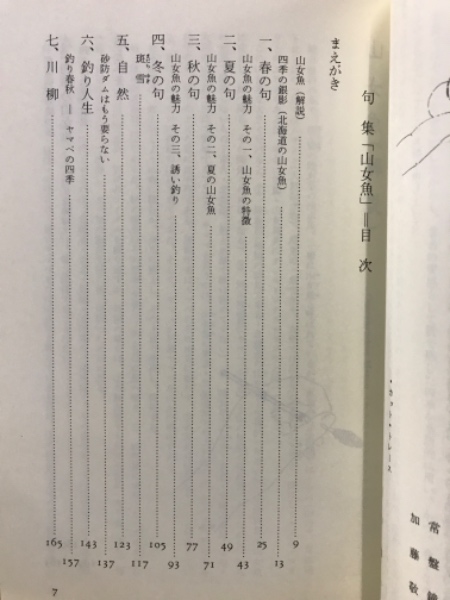 句集「山女魚」＝目次
まえがき
山女魚（解説） 9
四季の銀影（北海道の山女魚） 13
一、春の句 25
山女魚の魅力 その一、山女魚の特徴 43
二、夏の句 49
山女魚の魅力 その二、夏の山女魚 71
三、秋の句 77
山女魚の魅力 その三、誘い釣り 93
四、冬の句 105
斑雪 117
五、自然 123
砂防ダムはもう要らない 137
六、釣り人生 143
釣り春秋 ― ヤマベの四季 157
七、川柳 165
7
・カット・トレース
常盤
加藤敬